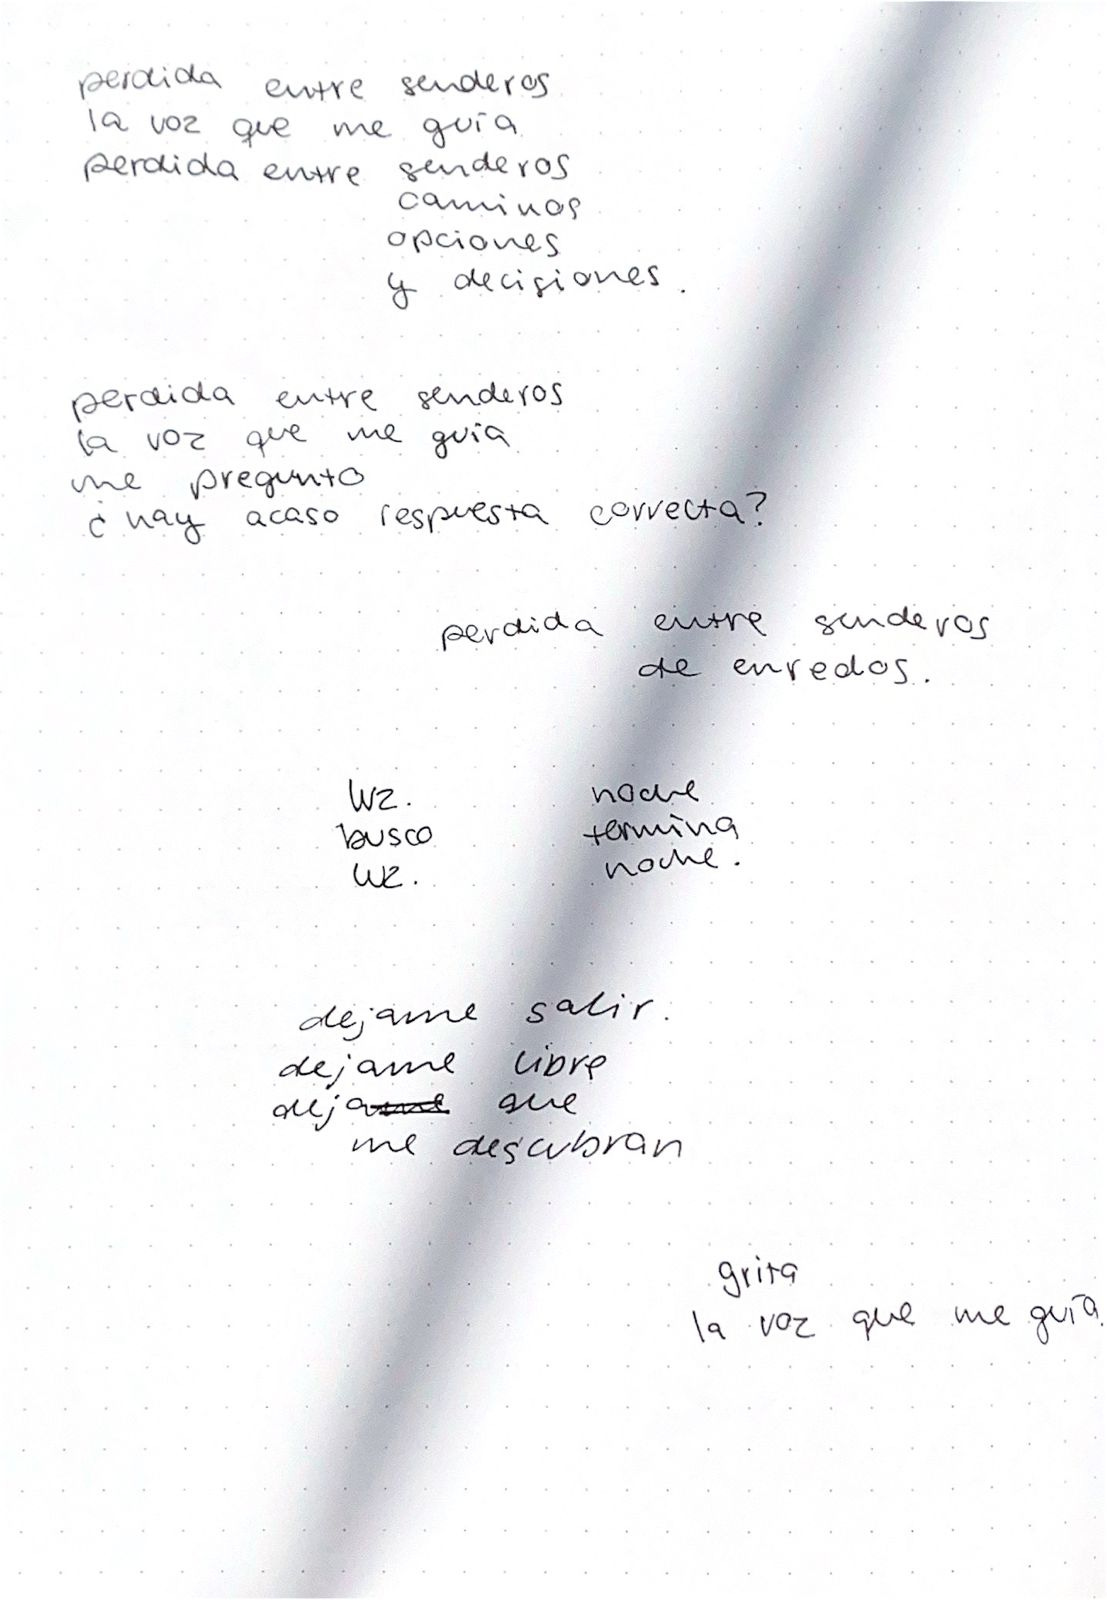 perdida entre senderos
la voz que me guía
perdida entre senderos
caminos
opciones
y decisiones.
perdida entre senderos
la voz que me guía
me pregunto
¿hay acaso respuesta correcta?
perdida entre senderos
de enredos.
luz. noche
busco termina
luz. noche.
dejame salir.
dejame libre
deja que
me descubran
grita
la voz que me guía